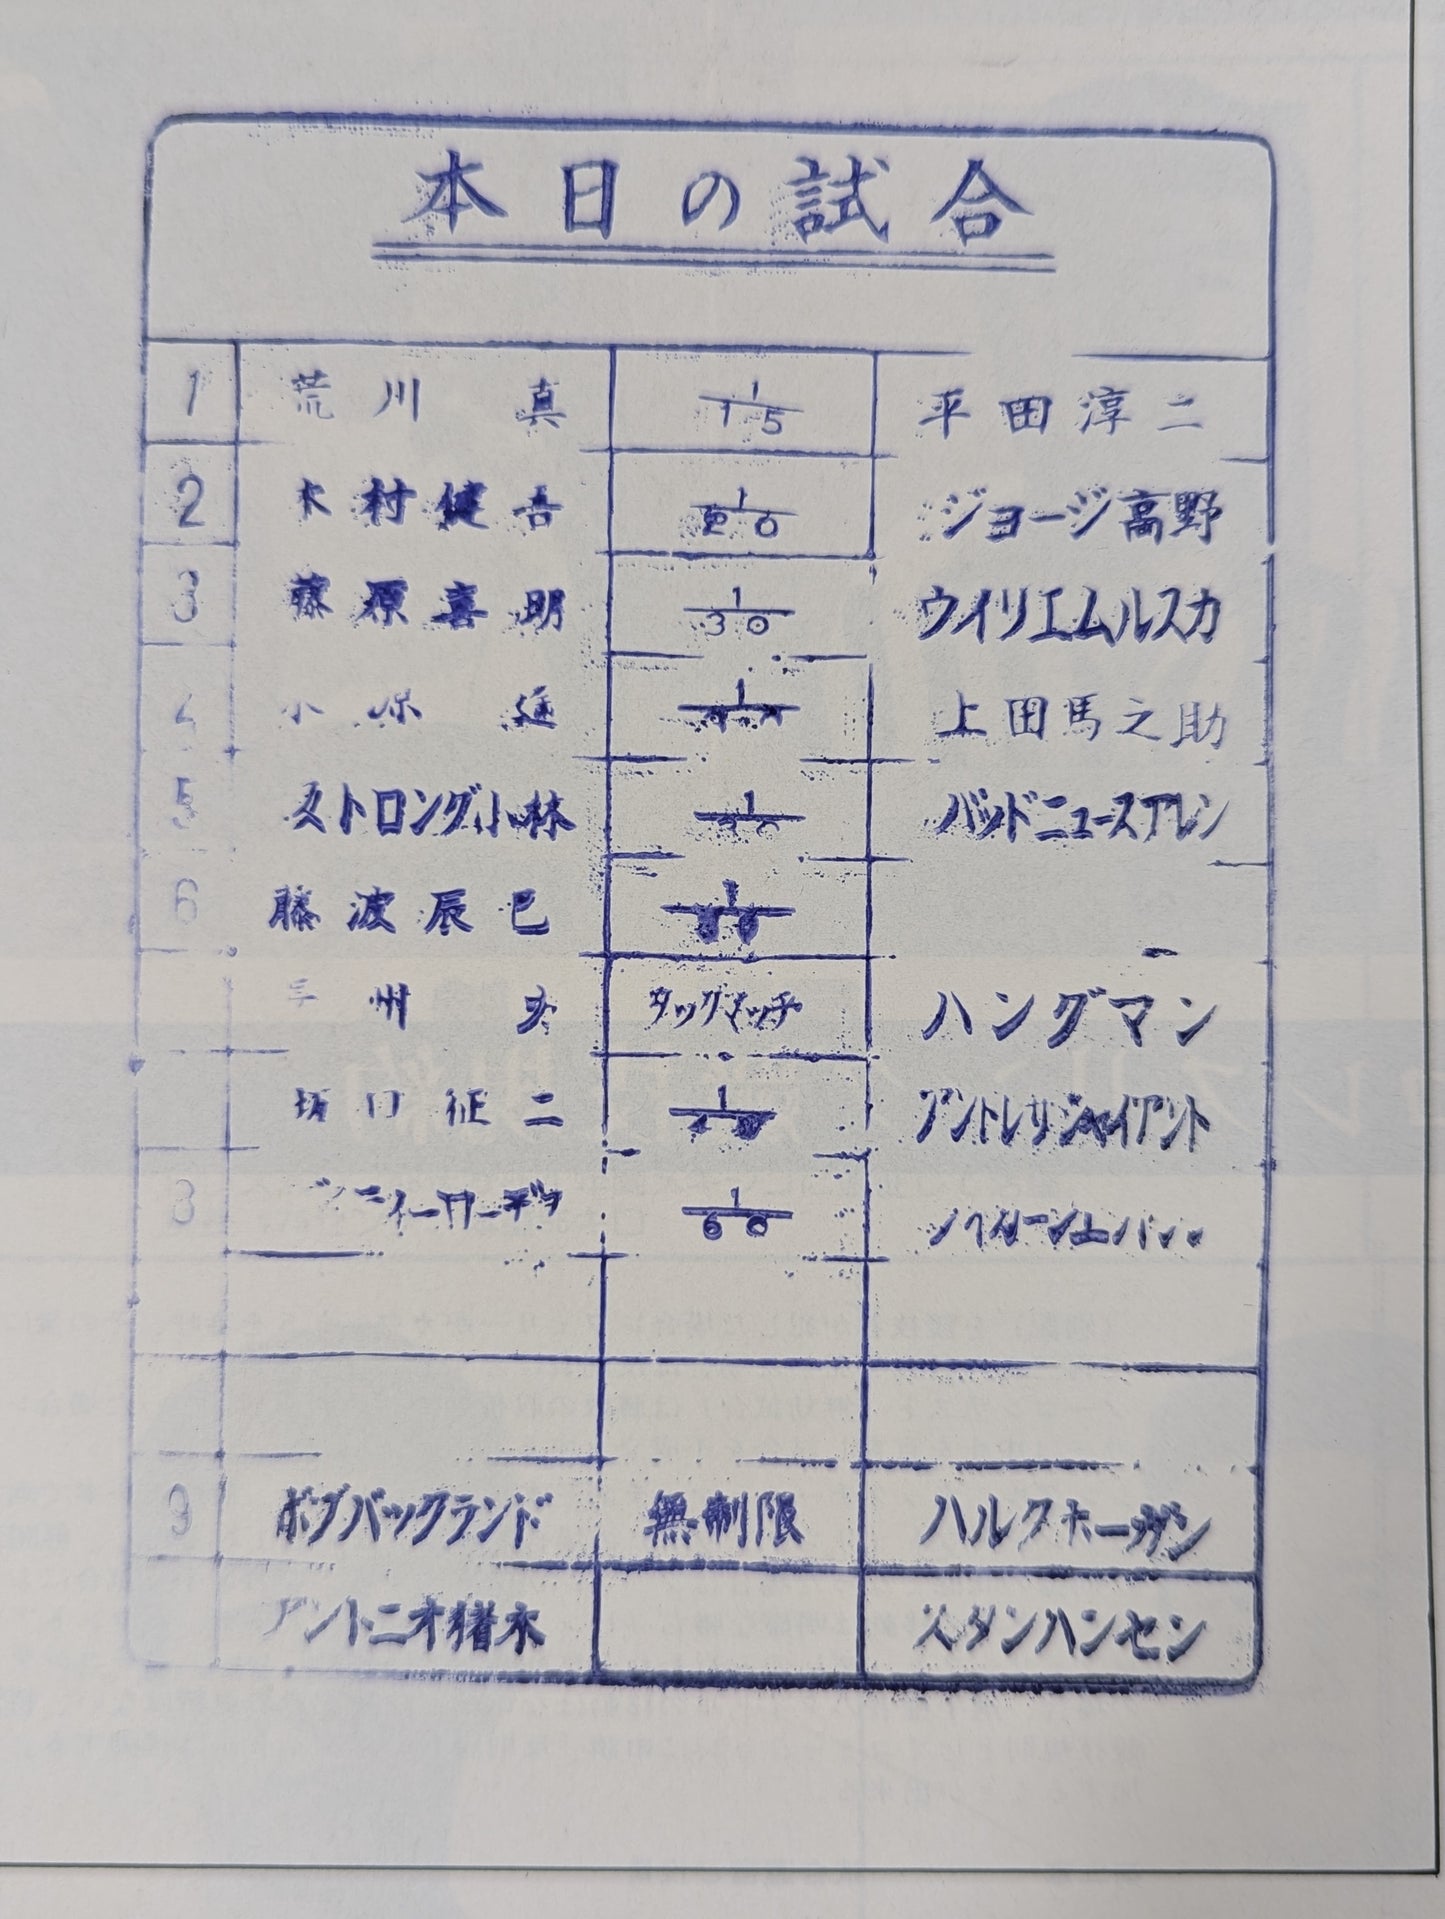 本日の試合
1 荒川 真 1/15 平田淳二
2 木村健吾 1/20 ジョージ高野
3 藤原喜明 1/30 ウイリエムルスカ
4 1 上田馬之助
5 ストロング小林 1/30 バッドニュースアレン
6 藤波辰巳 1
州 タッグマッチ ハングマン
坂口征二 1 アンドレザジャイアント
8 1/60
9 ボブバックランド 無制限 ハルクホーガン
アントニオ猪木 スタンハンセン